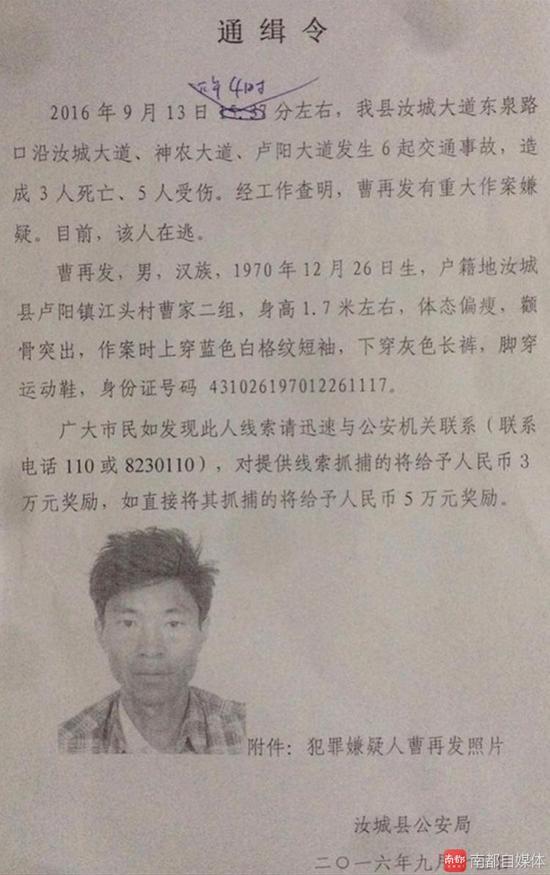 通缉令
下午4时
2016年9月13日 分左右，我县汝城大道东泉路
口沿汝城大道、神农大道、卢阳大道发生6起交通事故，造
成3人死亡、5人受伤。经工作查明，曹再发有重大作案嫌
疑。目前，该人在逃。
曹再发，男，汉族，1970年12月26日生，户籍地汝城
县卢阳镇江头村曹家二组，身高1.7米左右，体态偏瘦，颧
骨突出，作案时上穿蓝色白格纹短袖，下穿灰色长裤，脚穿
运动鞋，身份证号码 431026197012261117。
广大市民如发现此人线索请迅速与公安机关联系（联系
电话110或8230110），对提供线索抓捕的将给予人民币3
万元奖励，如直接将其抓捕的将给予人民币5万元奖励。
附件：犯罪嫌疑人曹再发照片
汝城县公安局
二〇一六年九月
南都 南都自媒体